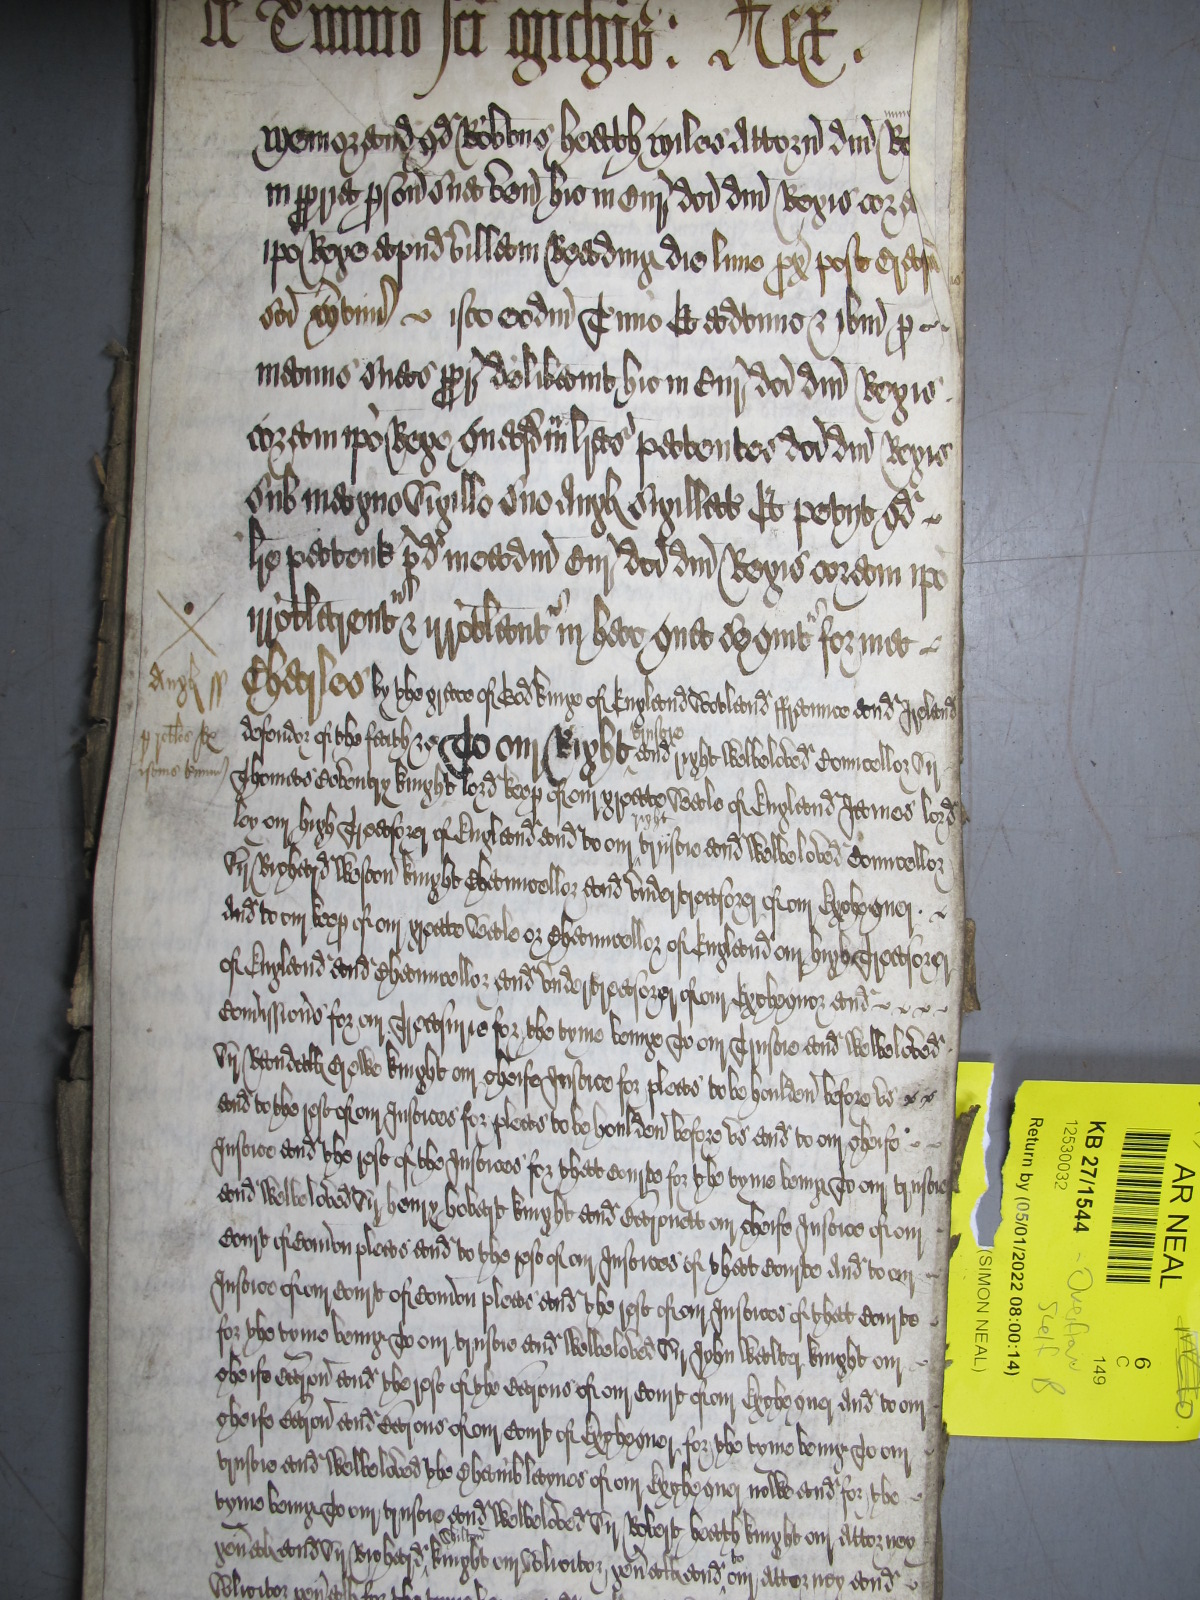 Termino sci Michis : Rex .
Memorand qd Robtus heath miles Attorn dni Re
in ppria pson sua ven hic in Cur dci dni Regis cora
ipo Rege apud villam Reading die lune px post Crastin
sci Martini isto eodm Tmio Et adtunc & ibm p
manus suas ppr delibavit hic in Cur dci dni Regis
coram ipo Rege quasdm lras patentes dci dni Regis
sub magno Sigillo suo Angl sigillat Et petiit qd
lre patent pd in eadm Cur dci dni Regis coram ipo
irrotlarent & irrotlantr in hec que sequntr forma
Angl ss
Charles by the grace of God kinge of England Scotland ffrance and Ireland
defendor of the faith &c To our Right trustie and right welbeloved Councellor Sir
Thomas Coventry knight lord keep of our greate Seale of England James lord
ley our high Treasorer of England and to our right trustie and welbeloved Councellor
Sir Richard Weston knight Chauncellor and undertreasorer of our Exchequer
And to our keep of our greate Seale or Chauncellor of England our high Treasorer
of England and Chauncellor and undertreasorer of our Exchequor and
Comissioners for our Treasurie for the tyme beinge To our Trustie and welbeloved
Sir Randall Crewe knight our cheife Justice for pleas to be houlden before us
and to the rest of our Justices for pleas to be houlden before us and to our cheife
Justice and the rest of the Justices for that courte for the tyme being To our trustie
and welbeloved Sir henry hobart knight and Barronett our cheife Justice of our
Court of Comon pleas and to the rest of our Justices of that Courte And to our
Justice of our Court of Comon pleas and the rest of our Justices of that Courte
for the tyme being To our trustie and welbeloved Sir John Walter knight our
cheife Baron and the rest of the Barons of our Court of our Exchequer and to our
cheife Baron and Barons of our Court of Exchequer for the tyme being To our
trustie and welbeloved the Chamberlaynes of our Exchequer nowe and for the
tyme being To our trustie and welbeloved Sir Robert heath knight our Attorney
genall and Sir Richard Shilton knight our Solicitor genall and to our Attorney and
Solicitor genall for the tyme
AR NEAL
KB 27/1544
12530032
Return by (05/01/2022 08:00:14)
(SIMON NEAL)
6
C
149